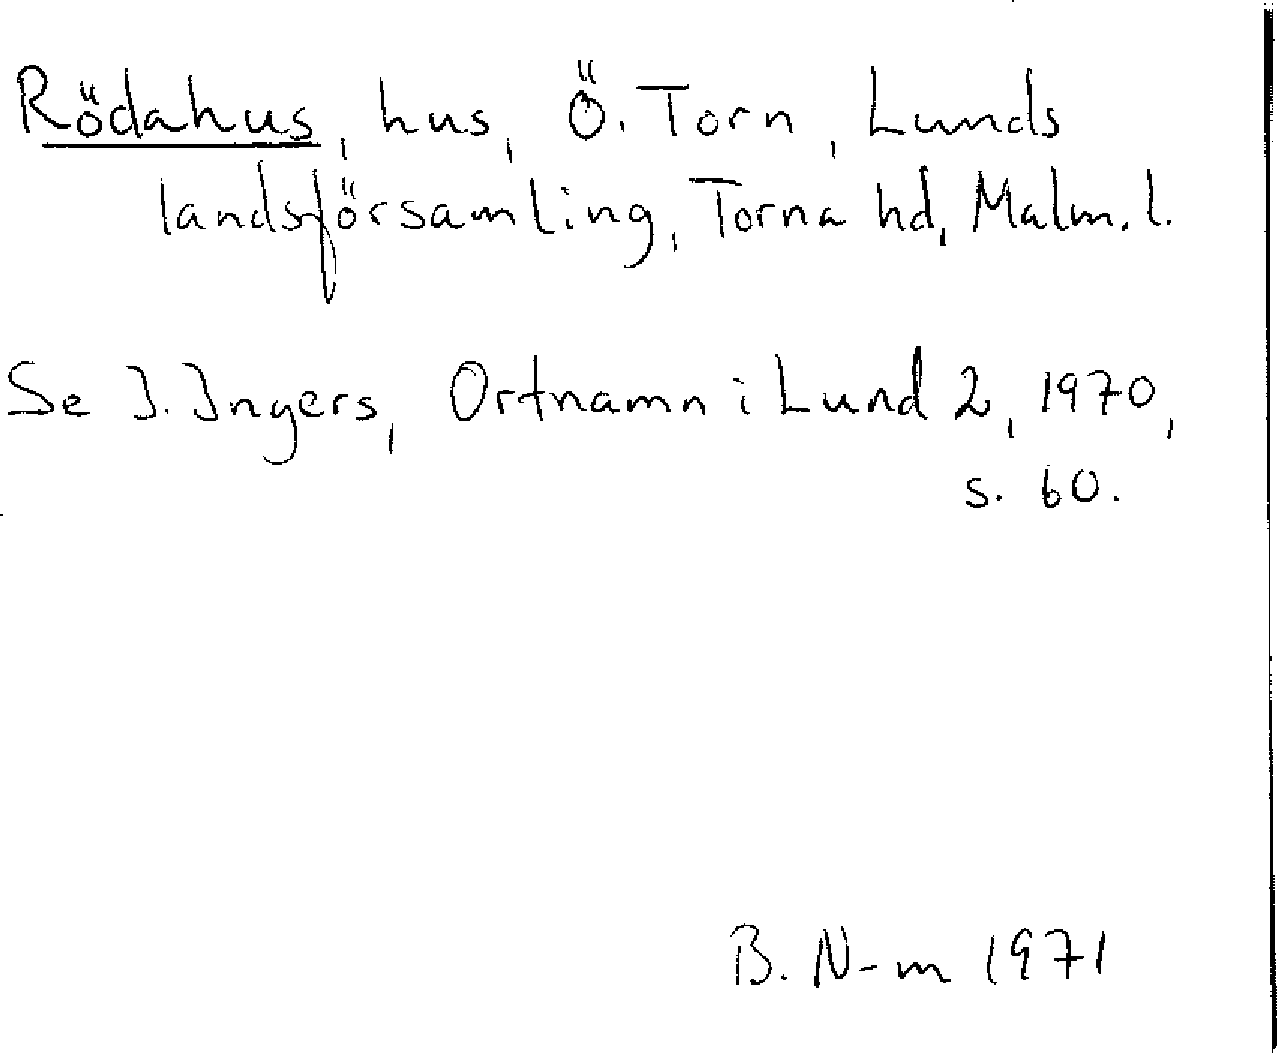 Rödahus, hus, Ö. Torn, Lunds
landsförsamling, Torna hd, Malm. l.
Se I. Ingers, Ortnamn i Lund 2, 1970,
s. 60.
B. N-m 1971